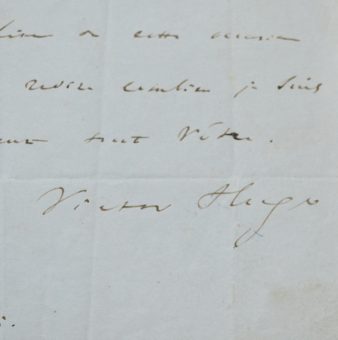 de cette occasion
redire combien je suis
tout vôtre.
Victor Hugo